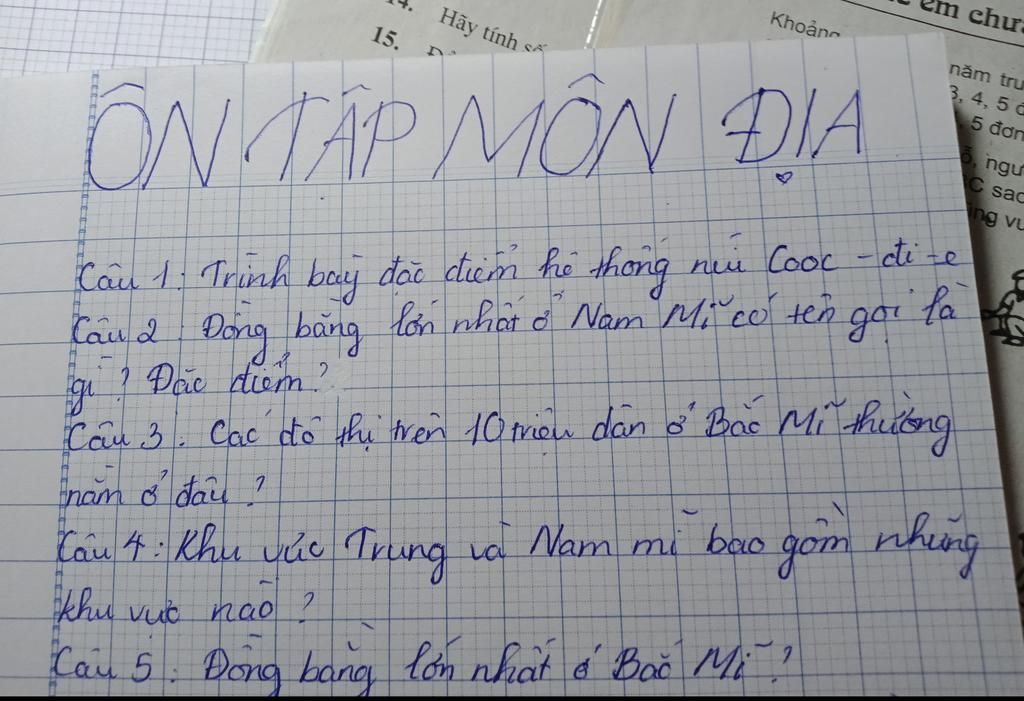 14. Hãy tính số
15.
Khoảng
em chưa
năm
3, 4, 5
5 đơn
sao
ÔN TẬP MÔN ĐỊA
Câu 1: Trình bày đặc điểm hệ thống núi Cooc - đi - e
Câu 2: Đồng bằng lớn nhất ở Nam Mĩ có tên gọi là
gì? Đặc điểm?
Câu 3: Các đô thị trên 10 triệu dân ở Bắc Mĩ thường
nằm ở đâu?
Câu 4: Khu vực Trung và Nam mĩ bao gồm những
khu vực nào?
Câu 5: Đồng bằng lớn nhất ở Bắc Mĩ?